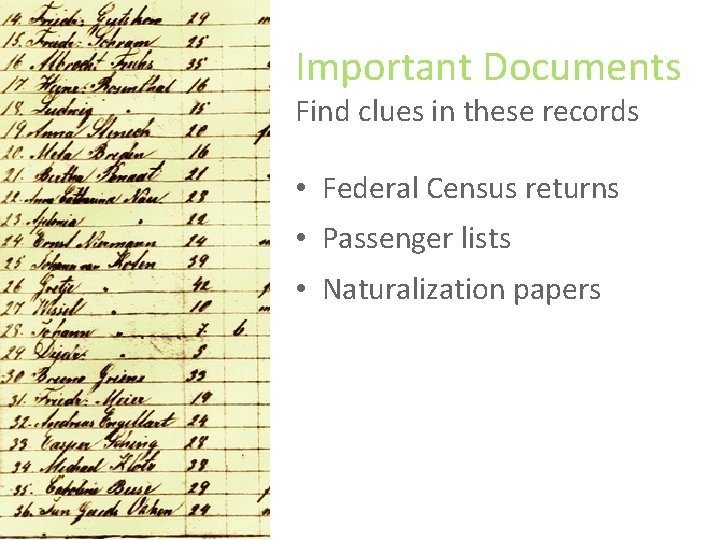 14. Friedr. 29
15. Friedr. Schramm 25
16. Albrecht Fuchs 35
17. Heinr. Rosenthal 16
18. Ludwig " 15
19. Anna 20
20. Meta Breden 16
21. Bertha 21
22. Anna Catharina Nau 23
23. " 22
24. Ernst Niermann 24
25 Johann von Kosten 39
26 Gretje " 42
27 Wessel " 10
28. Johann " 7 6
29 " 5
30 33
31. Friedr. Meier 19
32. Andreas Engelhart 24
33 Casper 28
34. Michael Klotz 38
35. Caroline Buse 29
36. 24
Important Documents
Find clues in these records
• Federal Census returns
• Passenger lists
• Naturalization papers